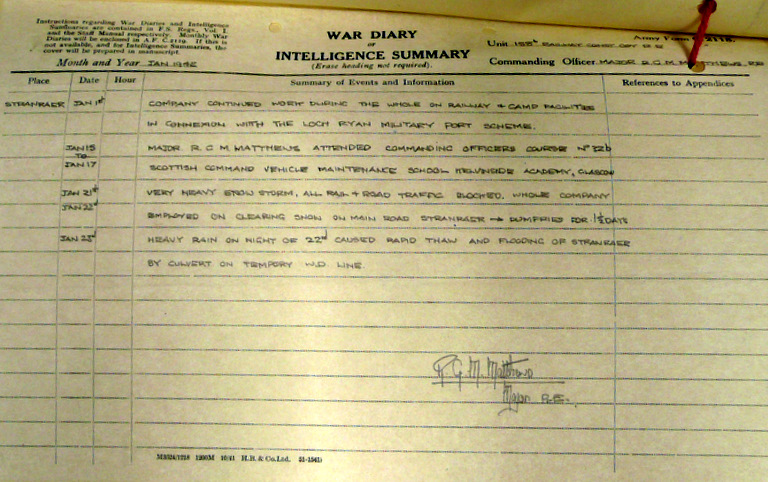 Instructions regarding War Diaries and Intelligence
Summaries are contained in F.S. Regs., Vol. I.
and the Staff Manual respectively. Monthly War
Diaries will be enclosed in A.F. C.2119. If this is
not available, and for Intelligence Summaries, the
cover will be prepared in manuscript.
WAR DIARY
OR
INTELLIGENCE SUMMARY
(Erase heading not required).
Army Form C.2118.
Unit 158th RAILWAY CONST. COY R.E
Month and Year JAN 1942
Commanding Officer MAJOR R.G.M. MATTHEWS, R.E
Place Date Hour Summary of Events and Information References to Appendices
STRANRAER JAN 1st COMPANY CONTINUED WORK DURING THE WHOLE ON RAILWAY & CAMP FACILITIES
IN CONNEXION WITH THE LOCH RYAN MILITARY PORT SCHEME.
JAN 15 MAJOR R.G.M. MATTHEWS ATTENDED COMMANDING OFFICERS COURSE No 12b
TO
JAN 17 SCOTTISH COMMAND VEHICLE MAINTENANCE SCHOOL KELVINSIDE ACADEMY, GLASGOW
JAN 21st VERY HEAVY SNOW STORM, ALL RAIL & ROAD TRAFFIC BLOCKED. WHOLE COMPANY
JAN 22nd EMPLOYED ON CLEARING SNOW ON MAIN ROAD STRANRAER → DUMFRIES FOR 1½ DAYS
JAN 23rd HEAVY RAIN ON NIGHT OF 22nd CAUSED RAPID THAW AND FLOODING OF STRANRAER
BY CULVERT ON TEMPORY W.D. LINE.
R.G.M. Matthews
Major R.E.
M3524/1218 1200M 10/41 H.B. & Co.Ltd. 51-1541)